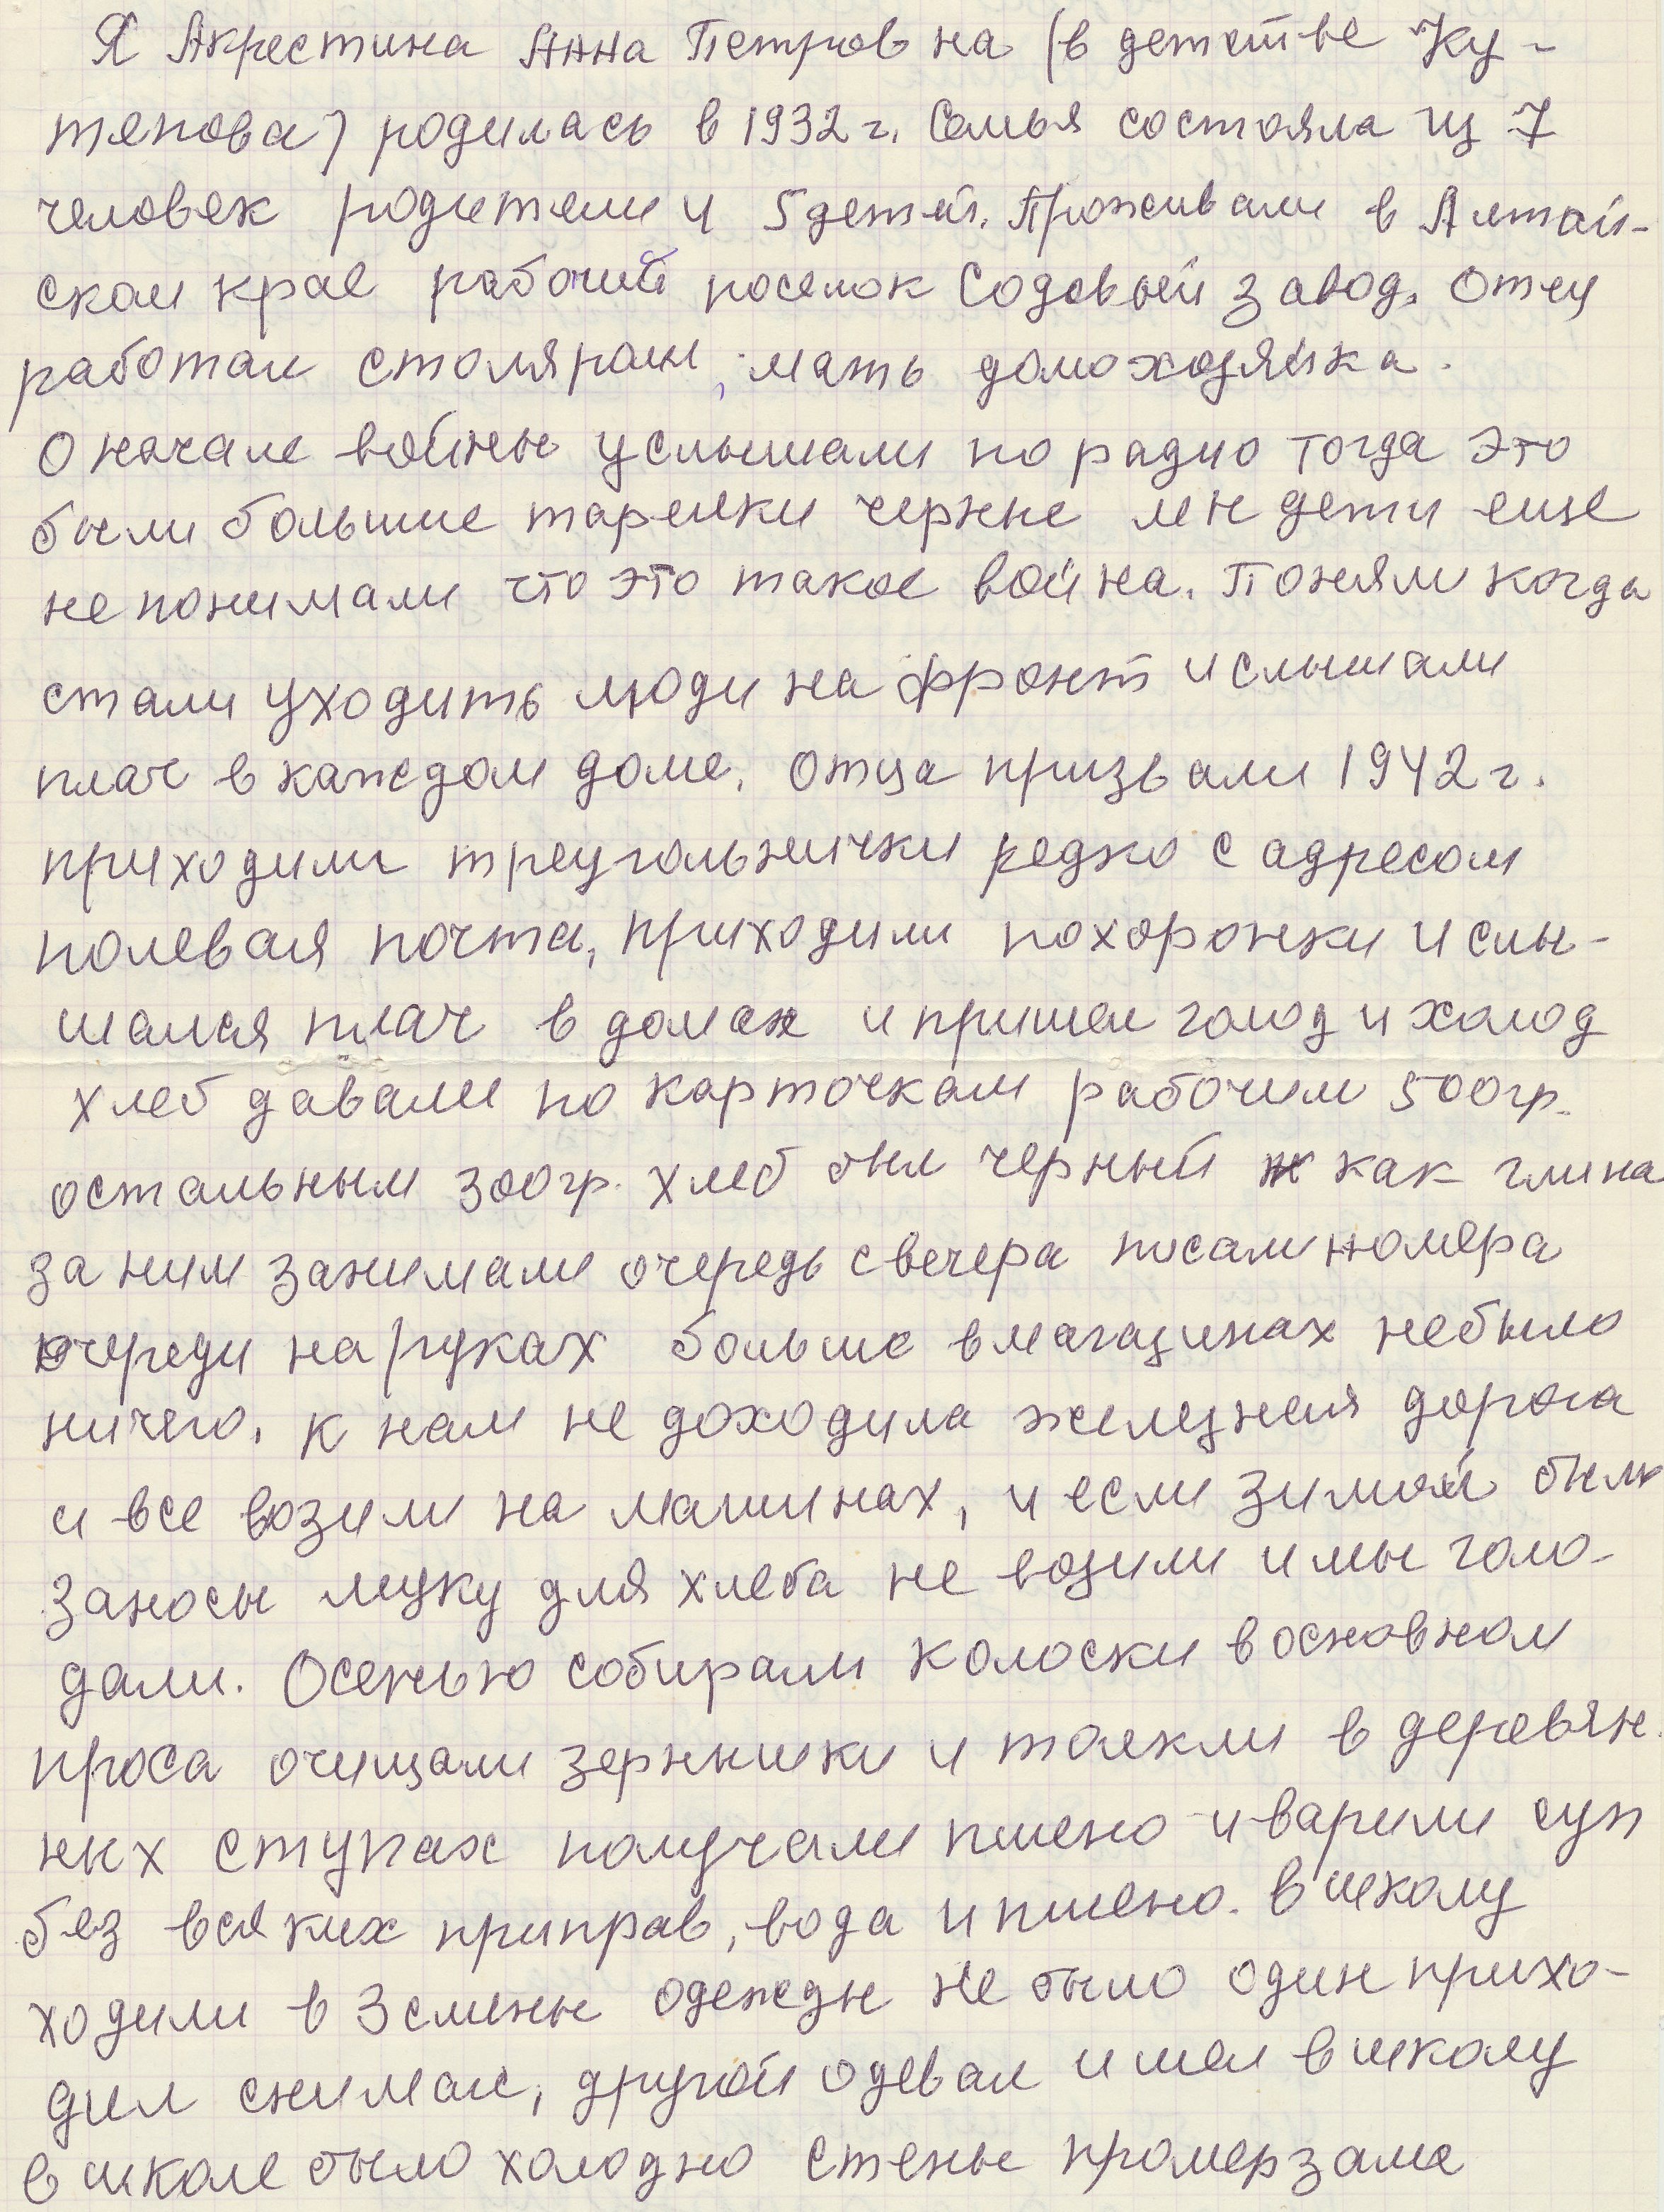 Я Акрестина Анна Петровна (в детстве Ку-
тепова) родилась в 1932 г. Семья состояла из 7
человек родители и 5 детей. Проживали в Алтай-
ском крае рабочий поселок Содовый завод. Отец
работал столяром, мать домохозяйка.
О начале войны услышали по радио тогда это
были большие тарелки черные мы дети еще
не понимали что это такое война. Поняли когда
стали уходить люди на фронт и слышали
плач в каждом доме. Отца призвали 1942 г.
приходили треугольнички редко с адресом
полевая почта, приходили похоронки и слы-
шался плач в домах и пришел голод и холод
хлеб давали по карточкам рабочим 500гр.
остальным 300гр. хлеб был черный как глина
за ним занимали очередь с вечера писали номера
очереди на руках больше в магазинах небыло
ничего. К нам не доходила железная дорога
и все возили на машинах, и если зимой были
заносы муку для хлеба не возили и мы голо-
дали. Осенью собирали колоски в основном
проса очищали зернышки и толкли в деревян
ных ступах получали пшено и варили суп
без всяких приправ, вода и пшено. В школу
ходили в 3 смены одежды не было один прихо-
дил снимал, другой одевал и шел в школу
в школе было холодно стены промерзали